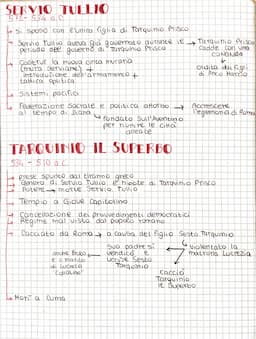 SERVIO TULLIO
575 - 534 a.C.
Si sposò con l'unica figlia di Tarquinio Prisco
Servio Tullio aveva già governato durante il → Tarquinio Prisco
periodo del governo di Tarquinio Prisco cadde con una
congiura
↓
ordita dai figli
di Anco Marcio
Costruì la nuova cinta muraria
(mura serviane) +
introduzione dell'armamento +
tattica oplitica
Sistemi pacifici
Federazione sociale e politica attorno → Accrescere
al tempio di Diana l'egemonia di Roma
↳ fondato sull'Aventino
per riunire le città
alleate
TARQUINIO IL SUPERBO
534 - 510 a.C.
prese spunto dai tiranni greci
Genero di Servio Tullio e nipote di Tarquinio Prisco
Potere → morte Servio Tullio
Tempio a Giove Capitolino
Cancellazione dei provvedimenti democratici
Regime mal visto dal popolo romano
Cacciato da Roma → a causa del figlio Sesto Tarquinio
Suo padre si
vendicò e
uccise Sesto
Tarquinio
violentato la
matrona Lucrezia
anche Bruto
e il marito
di Lucrezia
"Collatino"
Cacciò
Tarquinio
il Superbo
Morì a Cuma